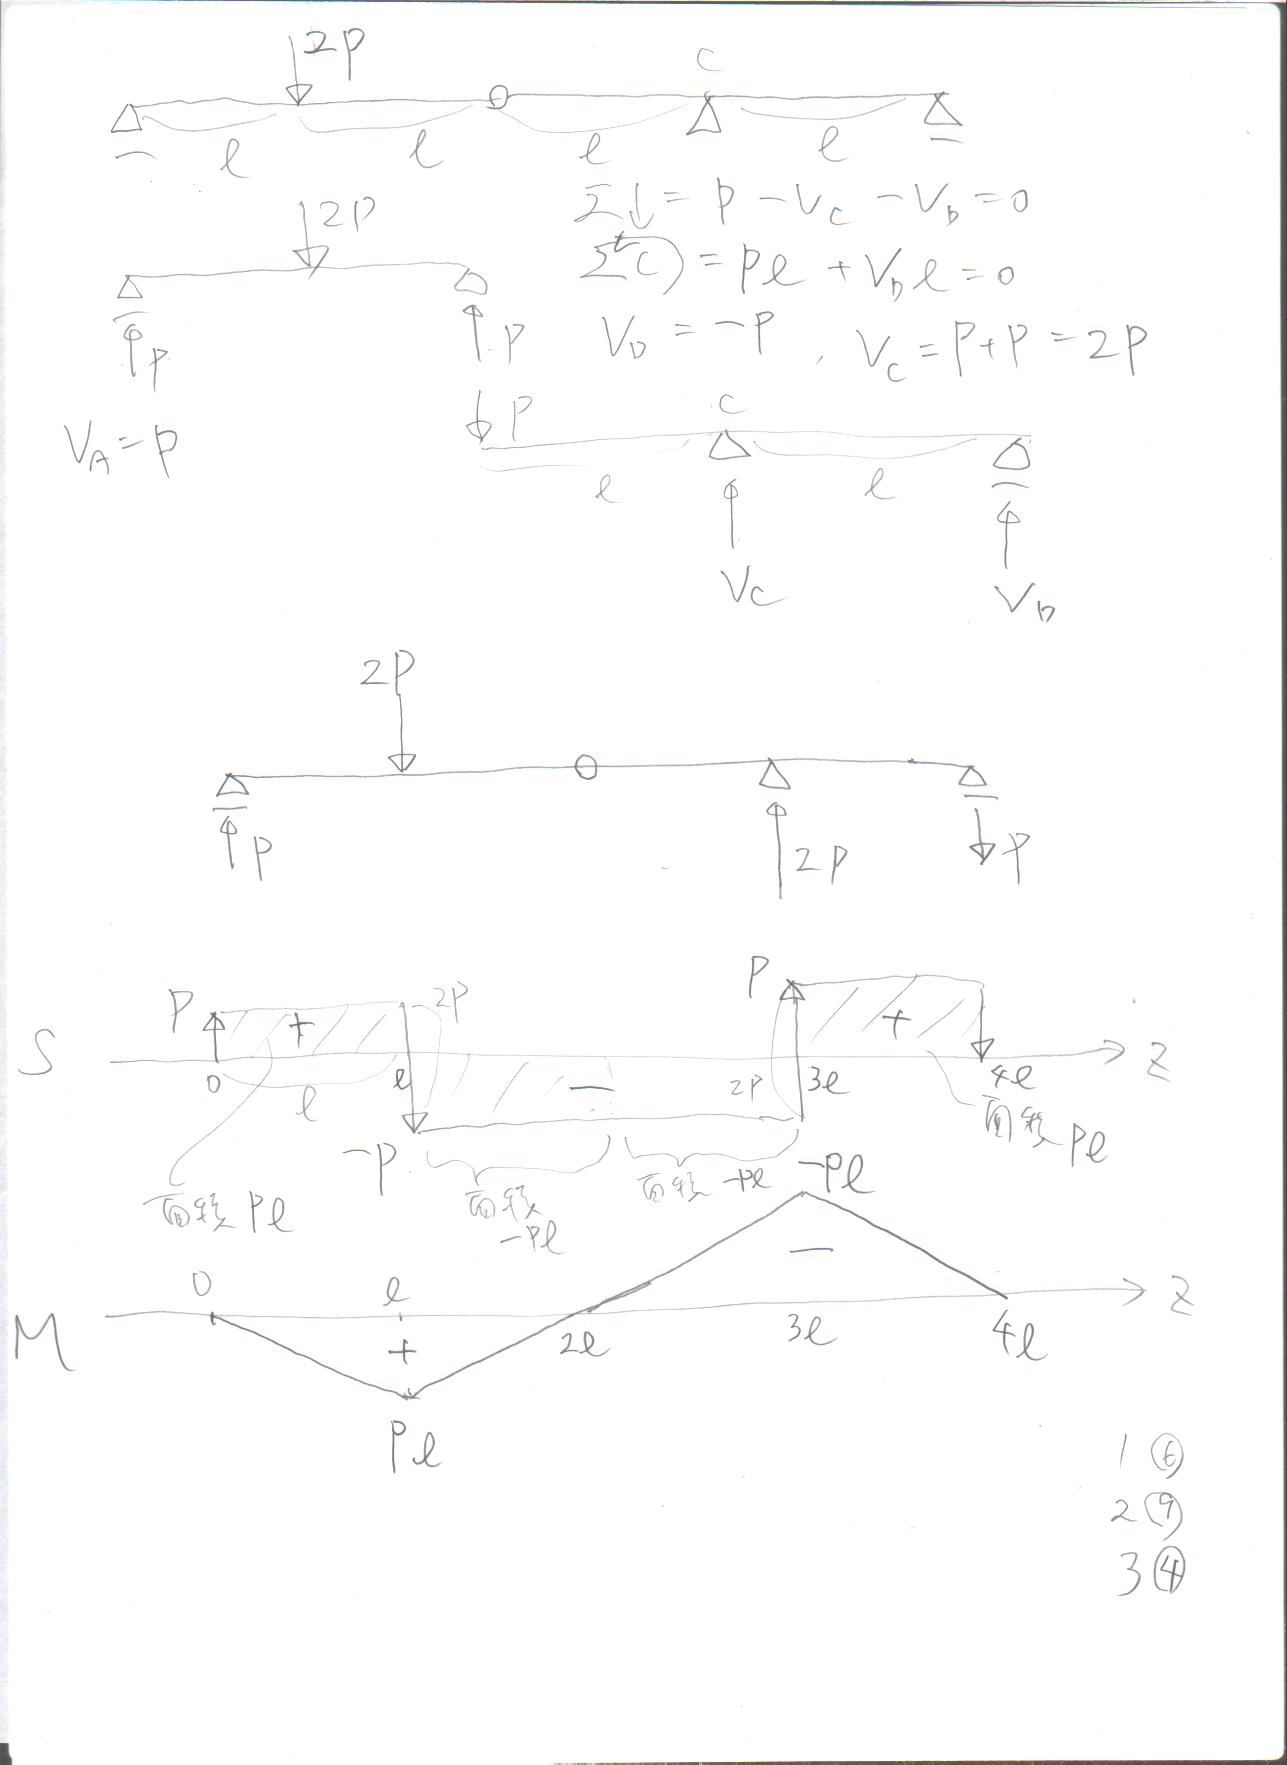 2P
C
l l l l
Σ↓ = P - V_C - V_D = 0
2P
Σ C = Pl + V_D l = 0
P P V_D = -P , V_C = P+P = 2P
V_A = P
P C
l l
V_C V_D
2P
P 2P P
P 2P P
S + - + Z
0 l l 2P 3l 4l
-P 面積 Pl
面積 Pl 面積 -Pl 面積 -Pl -Pl
0 l - Z
M + 2l 3l 4l
Pl
1 ⑥
2 ⑨
3 ④